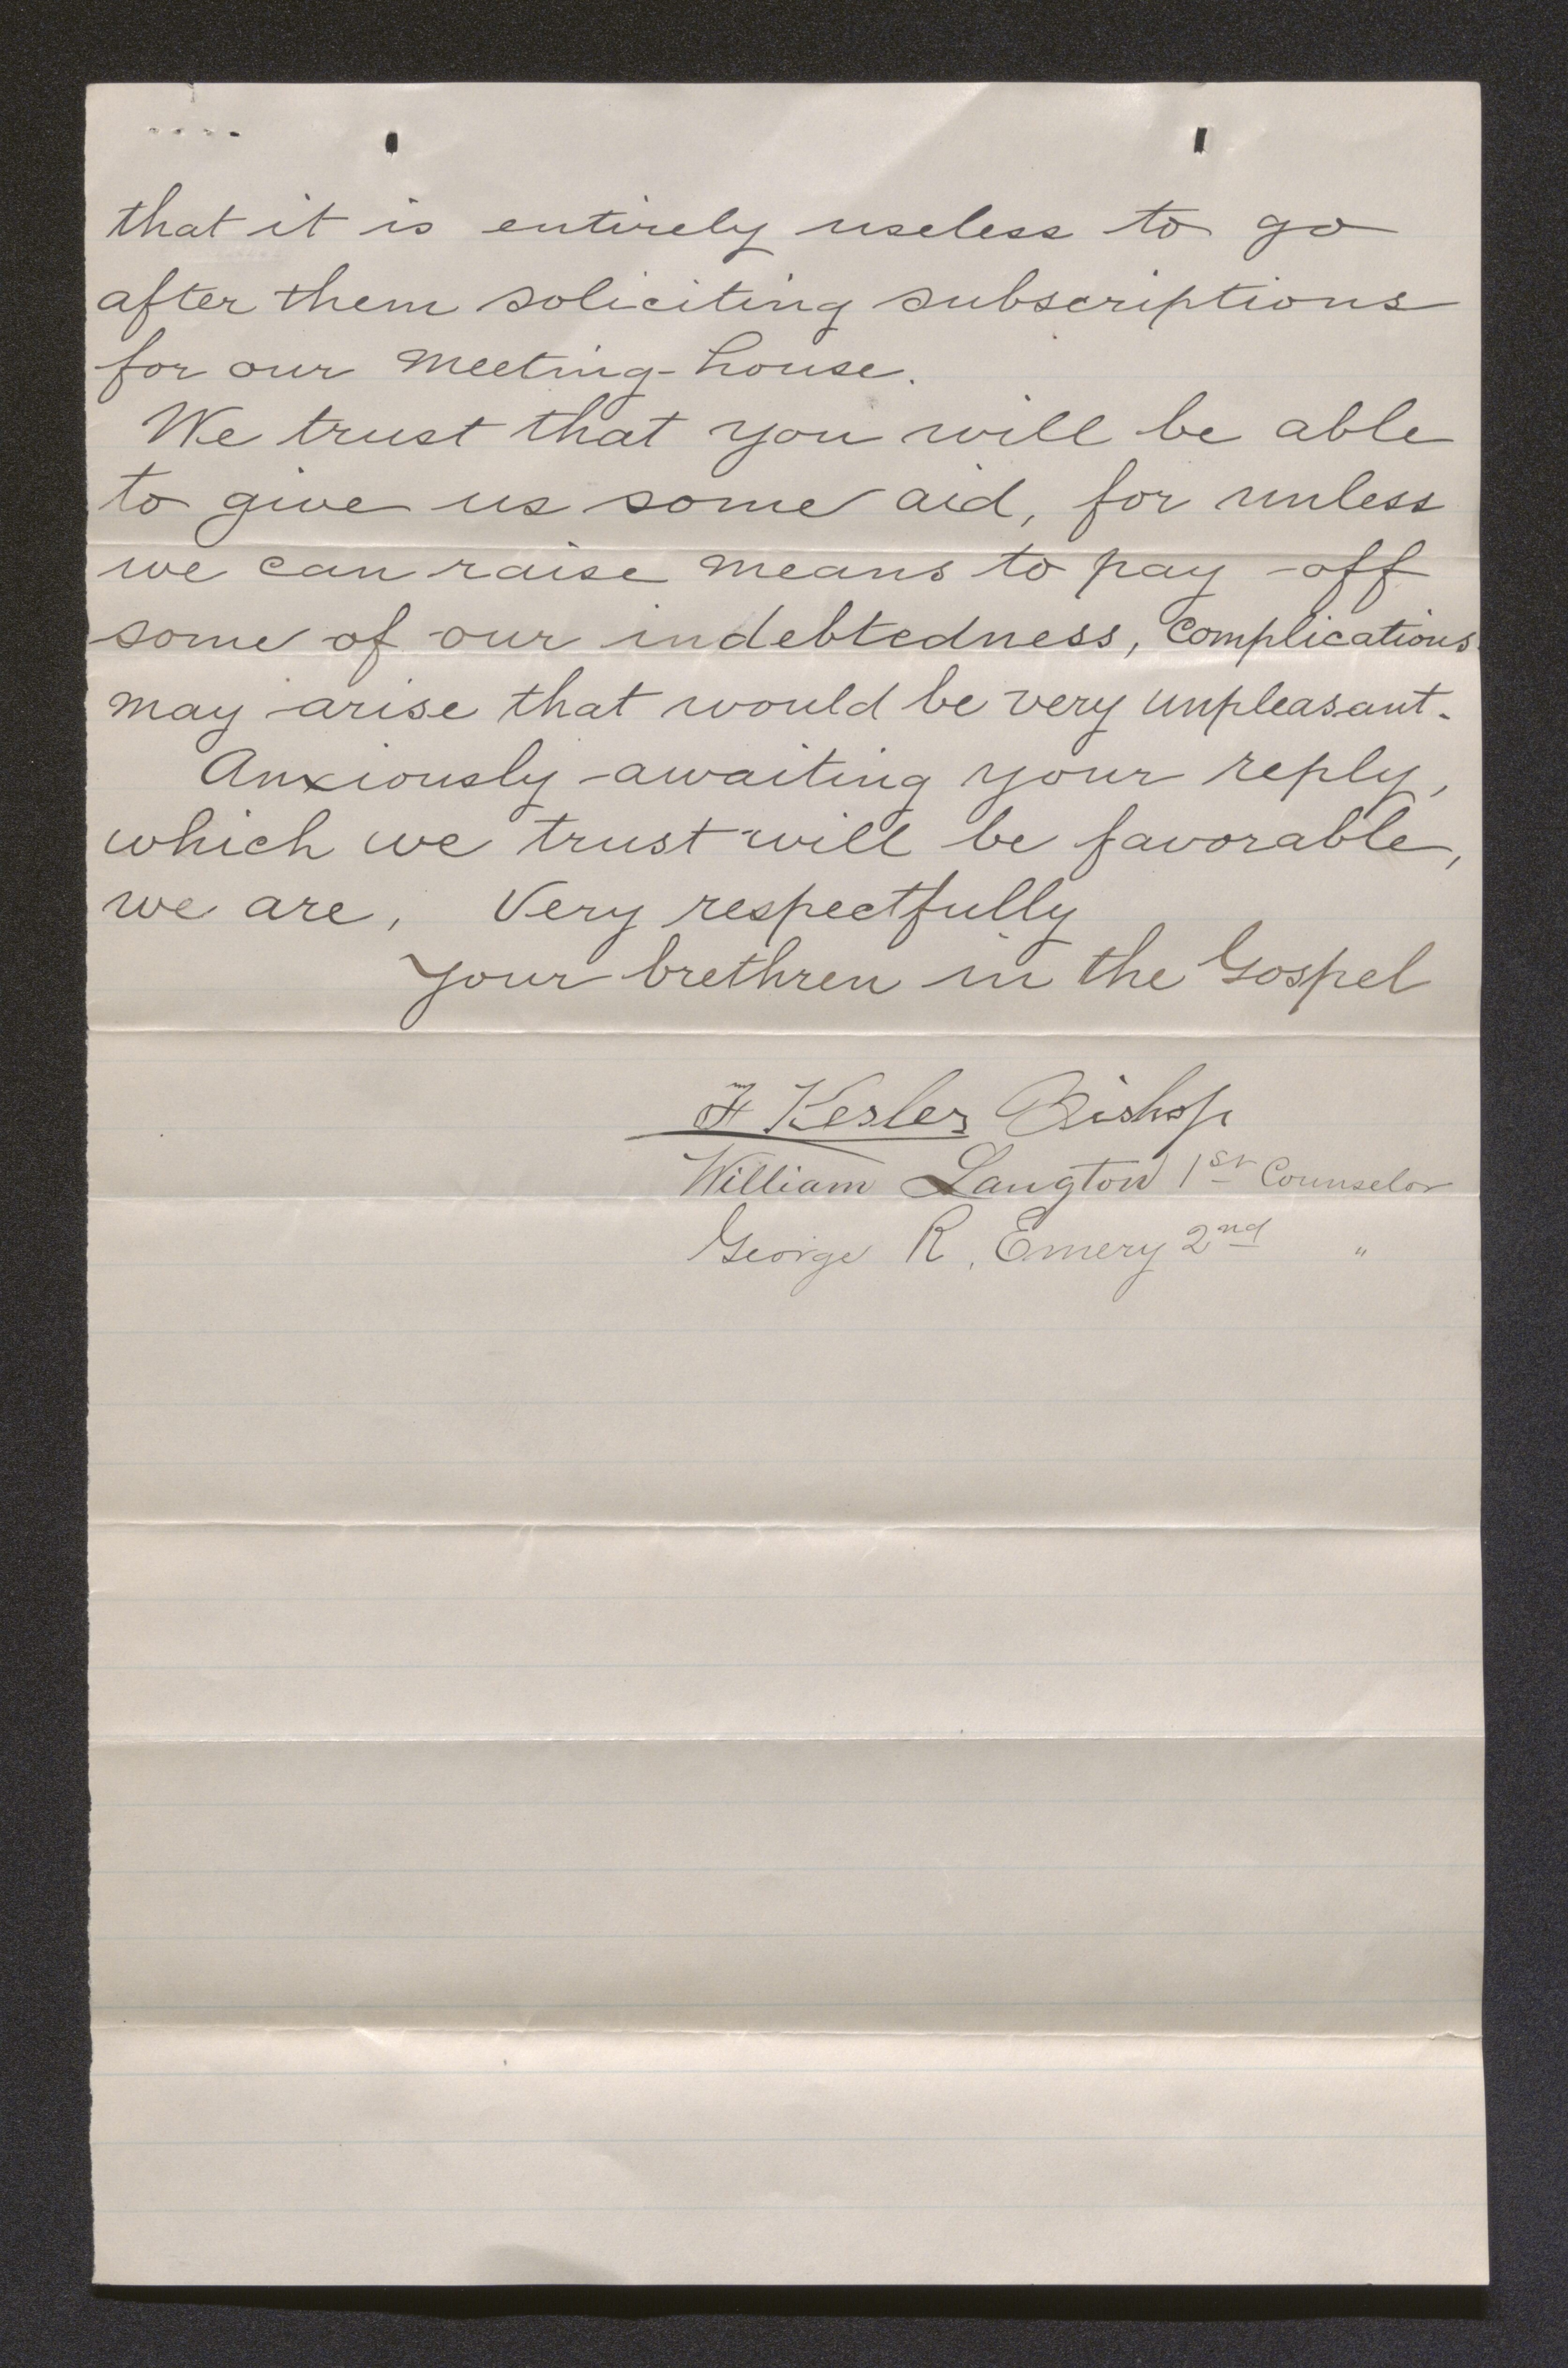 that it is entirely useless to go
after them soliciting subscriptions
for our meeting-house.
We trust that you will be able
to give us some aid, for unless
we can raise means to pay off
some of our indebtedness, complications
may arise that would be very unpleasant.
Anxiously awaiting your reply,
which we trust will be favorable,
we are, Very respectfully
your brethren in the Gospel
F Kesler Bishop
William Langton 1st Counselor
George R. Emery 2nd "